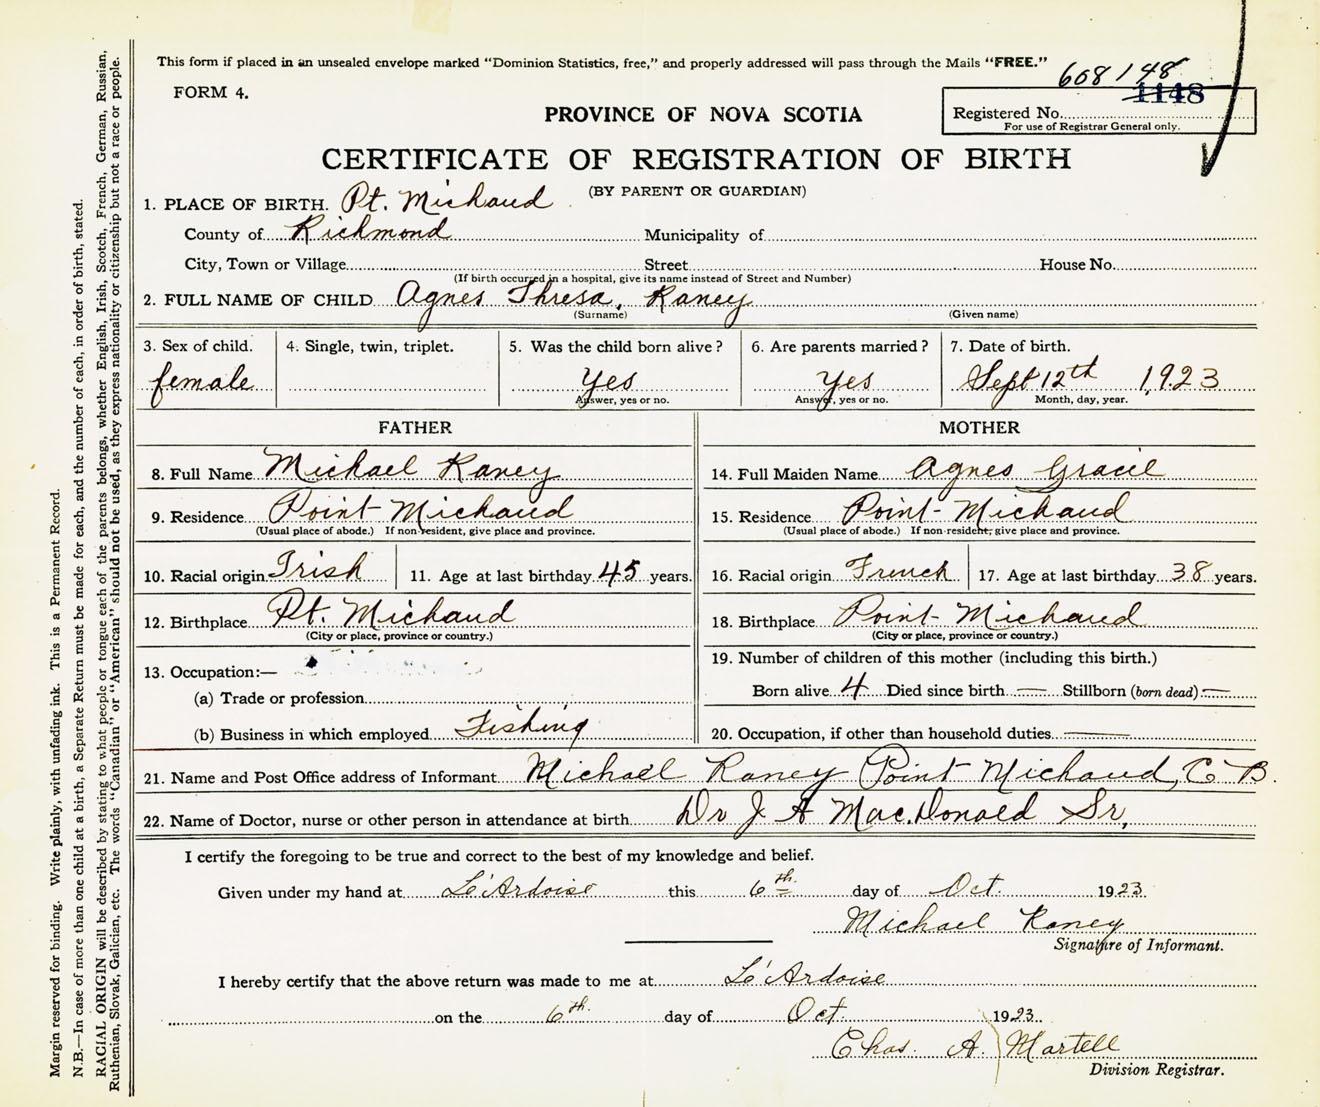 This form if placed in an unsealed envelope marked "Dominion Statistics, free," and properly addressed will pass through the Mails "FREE."
FORM 4.
608148
1148
PROVINCE OF NOVA SCOTIA
Registered No.
For use of Registrar General only.
CERTIFICATE OF REGISTRATION OF BIRTH
(BY PARENT OR GUARDIAN)
1. PLACE OF BIRTH. Pt. Michaud
County of Richmond Municipality of
City, Town or Village Street House No.
(If birth occurred in a hospital, give its name instead of Street and Number)
2. FULL NAME OF CHILD Agnes Thresa, Raney
(Surname) (Given name)
3. Sex of child. 4. Single, twin, triplet. 5. Was the child born alive? 6. Are parents married? 7. Date of birth.
female Yes Yes Sept 12th 1923
Answer, yes or no. Answer, yes or no. Month, day, year.
FATHER MOTHER
8. Full Name Michael Raney 14. Full Maiden Name Agnes Gracie
9. Residence Point Michaud 15. Residence Point-Michaud
(Usual place of abode.) If non-resident, give place and province. (Usual place of abode.) If non-resident, give place and province.
10. Racial origin Irish 11. Age at last birthday 45 years. 16. Racial origin French 17. Age at last birthday 38 years.
12. Birthplace Pt. Michaud 18. Birthplace Point-Michaud
(City or place, province or country.) (City or place, province or country.)
13. Occupation:— 19. Number of children of this mother (including this birth.)
(a) Trade or profession Born alive 4 Died since birth — Stillborn (born dead) —
(b) Business in which employed Fishing 20. Occupation, if other than household duties —
21. Name and Post Office address of Informant Michael Raney Point Michaud, C B.
22. Name of Doctor, nurse or other person in attendance at birth Dr J A MacDonald Sr,
I certify the foregoing to be true and correct to the best of my knowledge and belief.
Given under my hand at L'Ardoise this 6th day of Oct. 1923
Michael Raney
Signature of Informant.
I hereby certify that the above return was made to me at L'Ardoise
on the 6th day of Oct. 1923
Chas. A. Martell
Division Registrar.
Margin reserved for binding. Write plainly, with unfading ink. This is a Permanent Record.
N.B.—In case of more than one child at a birth, a Separate Return must be made for each, and the number of each, in order of birth, stated.
RACIAL ORIGIN will be described by stating to what people or tongue each of the parents belongs, whether English, Irish, Scotch, French, German, Russian,
Ruthenian, Slovak, Galician, etc. The words "Canadian" or "American" should not be used, as they express nationality or citizenship but not a race or people.